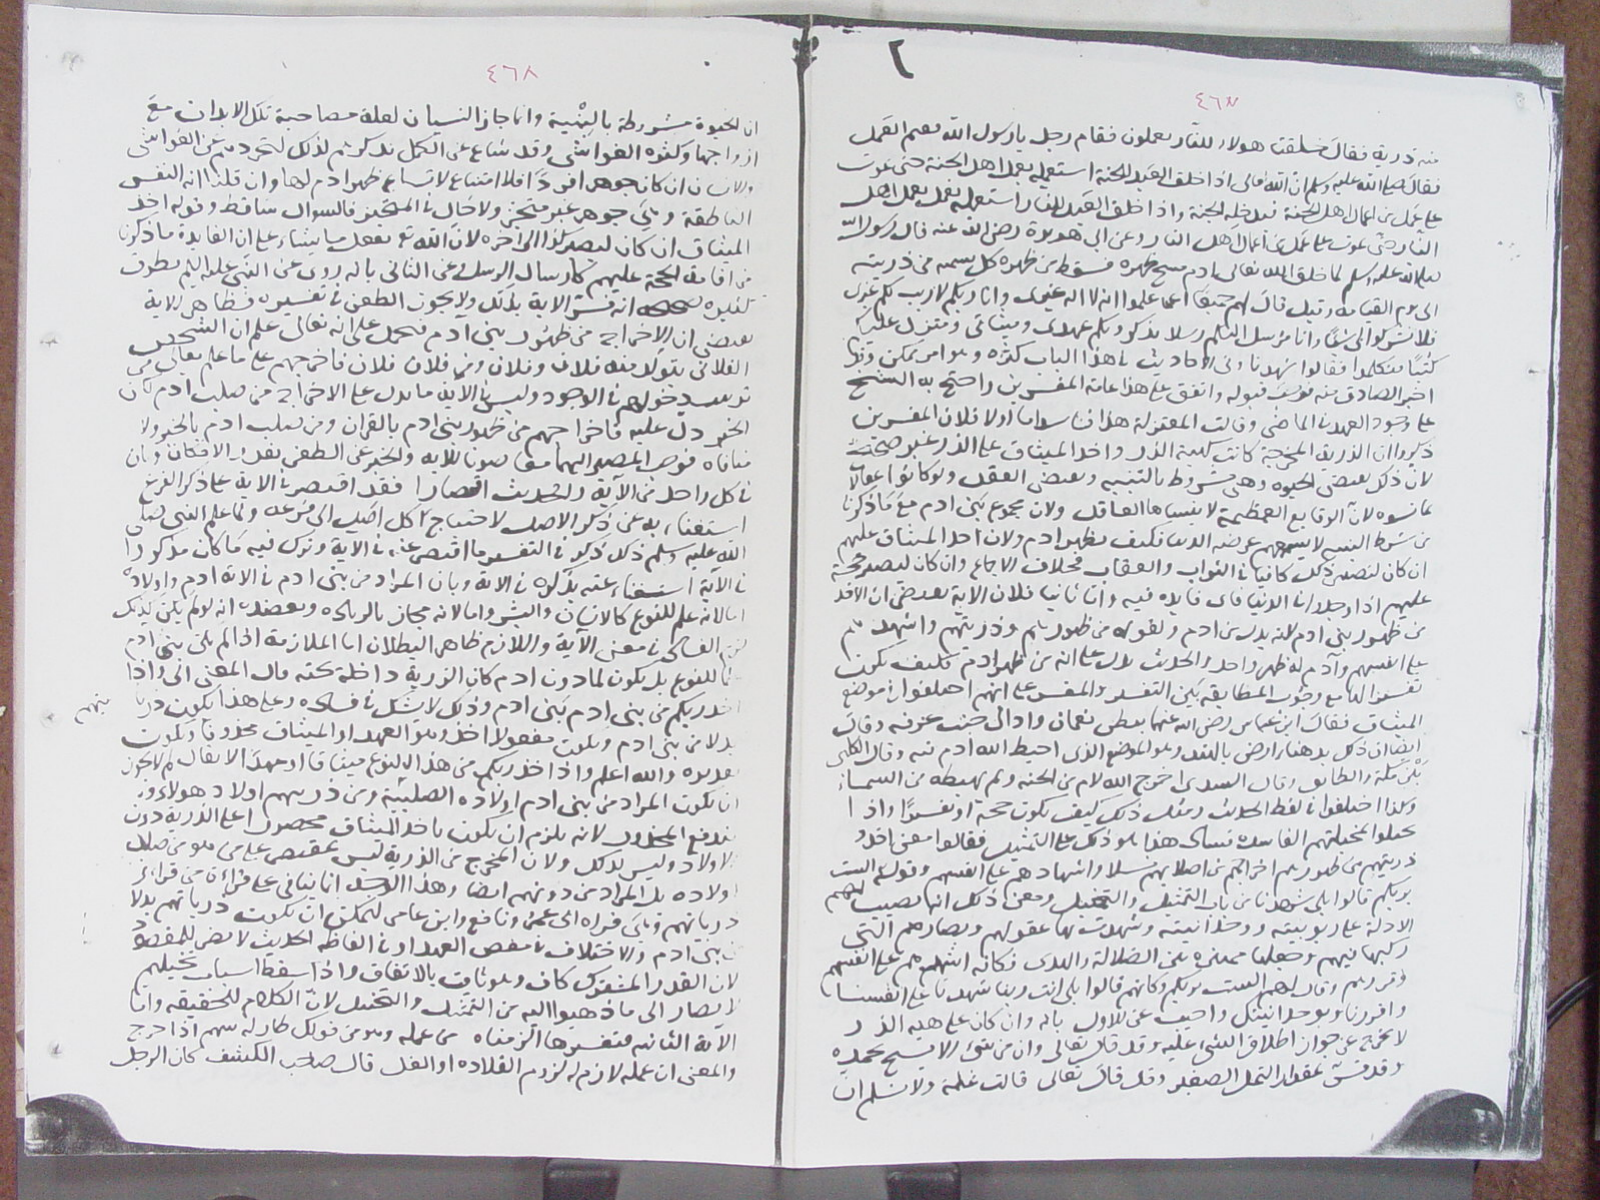 ٤٦٧
منه ذرية فقال خلقت هولاء للنار يعملون فقام رجل يا رسول الله ففيم العمل
فقال صلى الله عليه وسلم ان الله تعالى اذا خلق العبد للجنة استعمله بعمل اهل الجنة حتى يموت
على عمل من اعمال اهل الجنة فيدخله الجنة واذا خلق العبد للنار استعمله بعمل اهل
النار حتى يموت على عمل من اعمال اهل النار وعن ابى هريرة رضى الله عنه قال رسول الله
صلى الله عليه وسلم لما خلق الله تعالى ادم مسح ظهره فسقط من ظهره كل نسمة من ذريته
الى يوم القيامة وقيل قال لهم جميعا اعلموا انه لا اله غيرى وانا ربكم لا رب لكم غيرى
فلا تشركوا بى شيئا وانا مرسل اليكم رسلا يذكرونكم عهدى وميثاقى ومنزل عليكم
كتبا فتكلموا فقالوا شهدنا وفى الاحاديث فى هذا الباب كثرة وهو امر ممكن
اخبر الصادق عنه فوجب قبوله واتفق على هذا عامة المفسرين واحتج به الشيخ
على وجود العهد فى الماضى وقالت المعتزلة هذا فاسد اما اولا فلان المفسرين
ذكروا ان الذرية المخرجة كانت كهيئة الذر واخذ الميثاق على الذر غير صحيح
لان ذلك يقتضى الحيوة وهى مشروطة بالبنية ويقتضى العقل ولو كانوا عقلا
ما نسوه لان الوقايع العظيمة لا ينساها العاقل ولان مجموع بنى ادم مع ما ذكرنا
من شرط البنية لا يسعهم عرصة الدنيا فكيف بظهر ادم ولان اخذ الميثاق عليهم
ان كان ليصير ذلك كافيا فى الثواب والعقاب فخلاف الاجماع وان كان ليصير حجة
عليهم اذا وجدوا فى الدنيا فاى فايدة فيه واما ثانيا فلان الاية تقتضى ان الاخذ
من ظهور بنى ادم لانه بدل من ادم ولقوله من ظهورهم وذريتهم واشهدهم
على انفسهم وآدم له ظهر واحد والحديث يدل على انه من ظهر ادم فكيف يكون
تفسيرا لها مع وجوب المطابقة بين التفسير والمفسر على انهم اختلفوا فى موضع
الميثاق فقال ابن عباس رضى الله عنهما ببطن نعمان واد الى جنب عرفة وقال
ايضا ان ذلك بدهنا ارض بالهند وهو الموضع الذى اهبط الله ادم فيه وقال الكلبى
بين مكة والطايف وقال السدى اخرج الله ادم من الجنة ولم يهبطه من السماء
وكذا اختلفوا فى لفظ الحديث ومثل ذلك كيف يكون حجة او تفسيرا واذا
ذريتهم من ظهورهم اخراجهم من اصلابهم نسلا واشهادهم على انفسهم وقوله الست
بربكم قالوا بلى شهدنا من باب التمثيل والتخييل ومعنى ذلك انه نصب لهم
الادلة على ربوبيته ووحدانيته وشهدت بها عقولهم وبصايرهم التى
ركبها فيهم وجعلها مميزة بين الضلالة والهدى فكانه اشهدهم على انفسهم
وقررهم وقال لهم الست بربكم وكانهم قالوا بلى انت ربنا شهدنا على انفسنا
واقررنا بوحدانيتك واجيب عن الاول بانه وان كان على هيئة الذر
لا يخرج عن جواز اطلاق الشئ عليه وقد قال تعالى وان من شئ الا يسبح بحمده
وقد فسر بمقدار النمل الصغير وقد قال تعالى قالت نملة ولا نسلم ان
٤٦٨
ان الحيوة مشروطة بالبنية وانما جاز النسيان لعلة مصاحبة تلك الابدان مع
ازواجها وكثرة الغواشى وقد شاع عن الكمل تذكرهم لذلك لتجردهم عن الغواشى
والانسان ان كان جوهرا فردا فلا امتناع لاتساع ظهر ادم لها وان قلنا انه النفس
الناطقة وهى جوهر غير متحيز ولا حال فى المتحيز فالسوال ساقط وقوله اخذ
الميثاق ان كان ليصير كذا الى آخره لان الله تع يفعل ما يشاء على ان الفايدة ما ذكرنا
من اقامة الحجة عليهم كارسال الرسل وعن الثانى بانه روى عن النبى عليه السلم بطرق
كثيرة انه فسر الاية بذلك ولا يجوز الطعن فى تفسيره فظاهر الاية
يقتضى ان الاخراج من ظهور بنى ادم فيحمل على انه تعالى علم ان الشخص
الفلانى يتولد منه فلان وفلان ومن فلان فلان فاخرجهم على ما علم تعالى من
ترتيب دخولهم فى الوجود وليس فى الاية ما يدل على الاخراج من صلب ادم لكن
الخبر دل عليه فاخراجهم من ظهور بنى ادم بالقران ومن صلب ادم بالخبر ولا
منافاة فوجب المصير اليهما معا صونا للاية والخبر عن الطعن بقدر الامكان وبان
فى كل واحد من الآية والحديث اقتصارا فقد اقتصر فى الاية على ذكر الفرع
استغناء به عن ذكر الاصل لاحتياج كل اصل الى فرعه ولما علم النبى صلى
الله عليه وسلم ذلك ذكر فى التفسير ما اقتصر عنه فى الاية وترك فيه ما كان مذكورا
فى الآية استغناء عنه بذكره فى الاية وبان المراد من بنى ادم فى الاية ادم واولاده
اما لانه علم للنوع كالانسان والبشر واما لانه مجاز بالزيادة ويعضده انه لو لم يكن كذلك
لزم الفساد فى معنى الآية واللازم ظاهر البطلان اما الملازمة اذا لم يكن بنى ادم
علما للنوع بل يكون لما دون ادم كان الذرية داخلة تحته فان المعنى اذن واذا
اخذ ربكم من بنى ادم بنى ادم وذلك لا يشك فى فساده وعلى هذا يكون ذريا
تهم
بدلا من بنى ادم ويكون مفعولا اخذ وهو العهد او الميثاق محذوفا ويكون
تقديره والله اعلم واذا اخذ ربكم من هذا النوع ميثاقا او عهدا لا يقال لم لا يجوز
ان يكون المراد من بنى ادم اولاده الصلبية ومن ذريتهم اولاد هولاء
يندفع المحذور لانه يلزم ان يكون باخذ الميثاق محصورا على الذرية دون
الاولاد وليس كذلك ولان المخرج من الذرية ليس بمقتصر على من هو من صلب
اولاده بل المراد من دونهم ايضا وهذا الوجه انما يتاتى على قراءة من قراء
ذرياتهم وهى قراة ابى عمرو ونافع وابن عامر ليمكن ان يكون ذرياتهم بدلا
من بنى ادم والاختلاف فى بعض العهد او فى الفاظ الحديث لا يضر للمقصود
لان القدر المشترك كاف وهو ثابت بالاتفاق واذا سقط اسباب تخييلهم
لا يصار الى ما ذهبوا اليه من التمثيل والتخييل لان الكلام للحقيقة واما
الاية الثانية فتفسيرها الزمناه من عمله وهو من قولك طار له سهم اذا خرج
والمعنى ان عمله لازم له لزوم القلادة او الغل قال صاحب الكشف كان الرجل